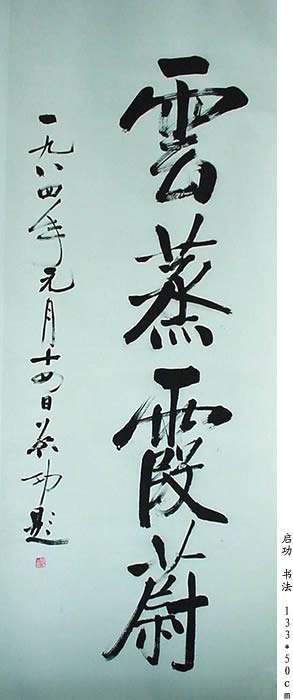 雲蒸霞蔚
一九八四年元月十四日启功題
启功 书法 133*50cm